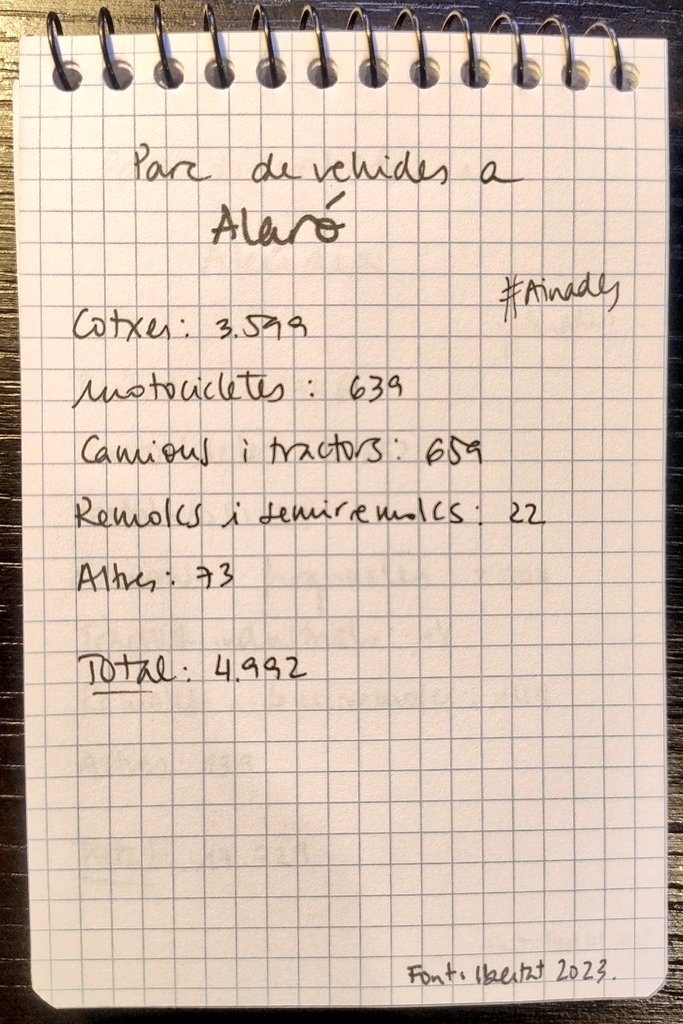 Parc de vehicles a
Alaró
#Ainades
Cotxes: 3.599
Motocicletes: 639
Camions i tractors: 659
Remolcs i semiremolcs: 22
Altres: 73
Total: 4.992
Font: Ibestat 2023.